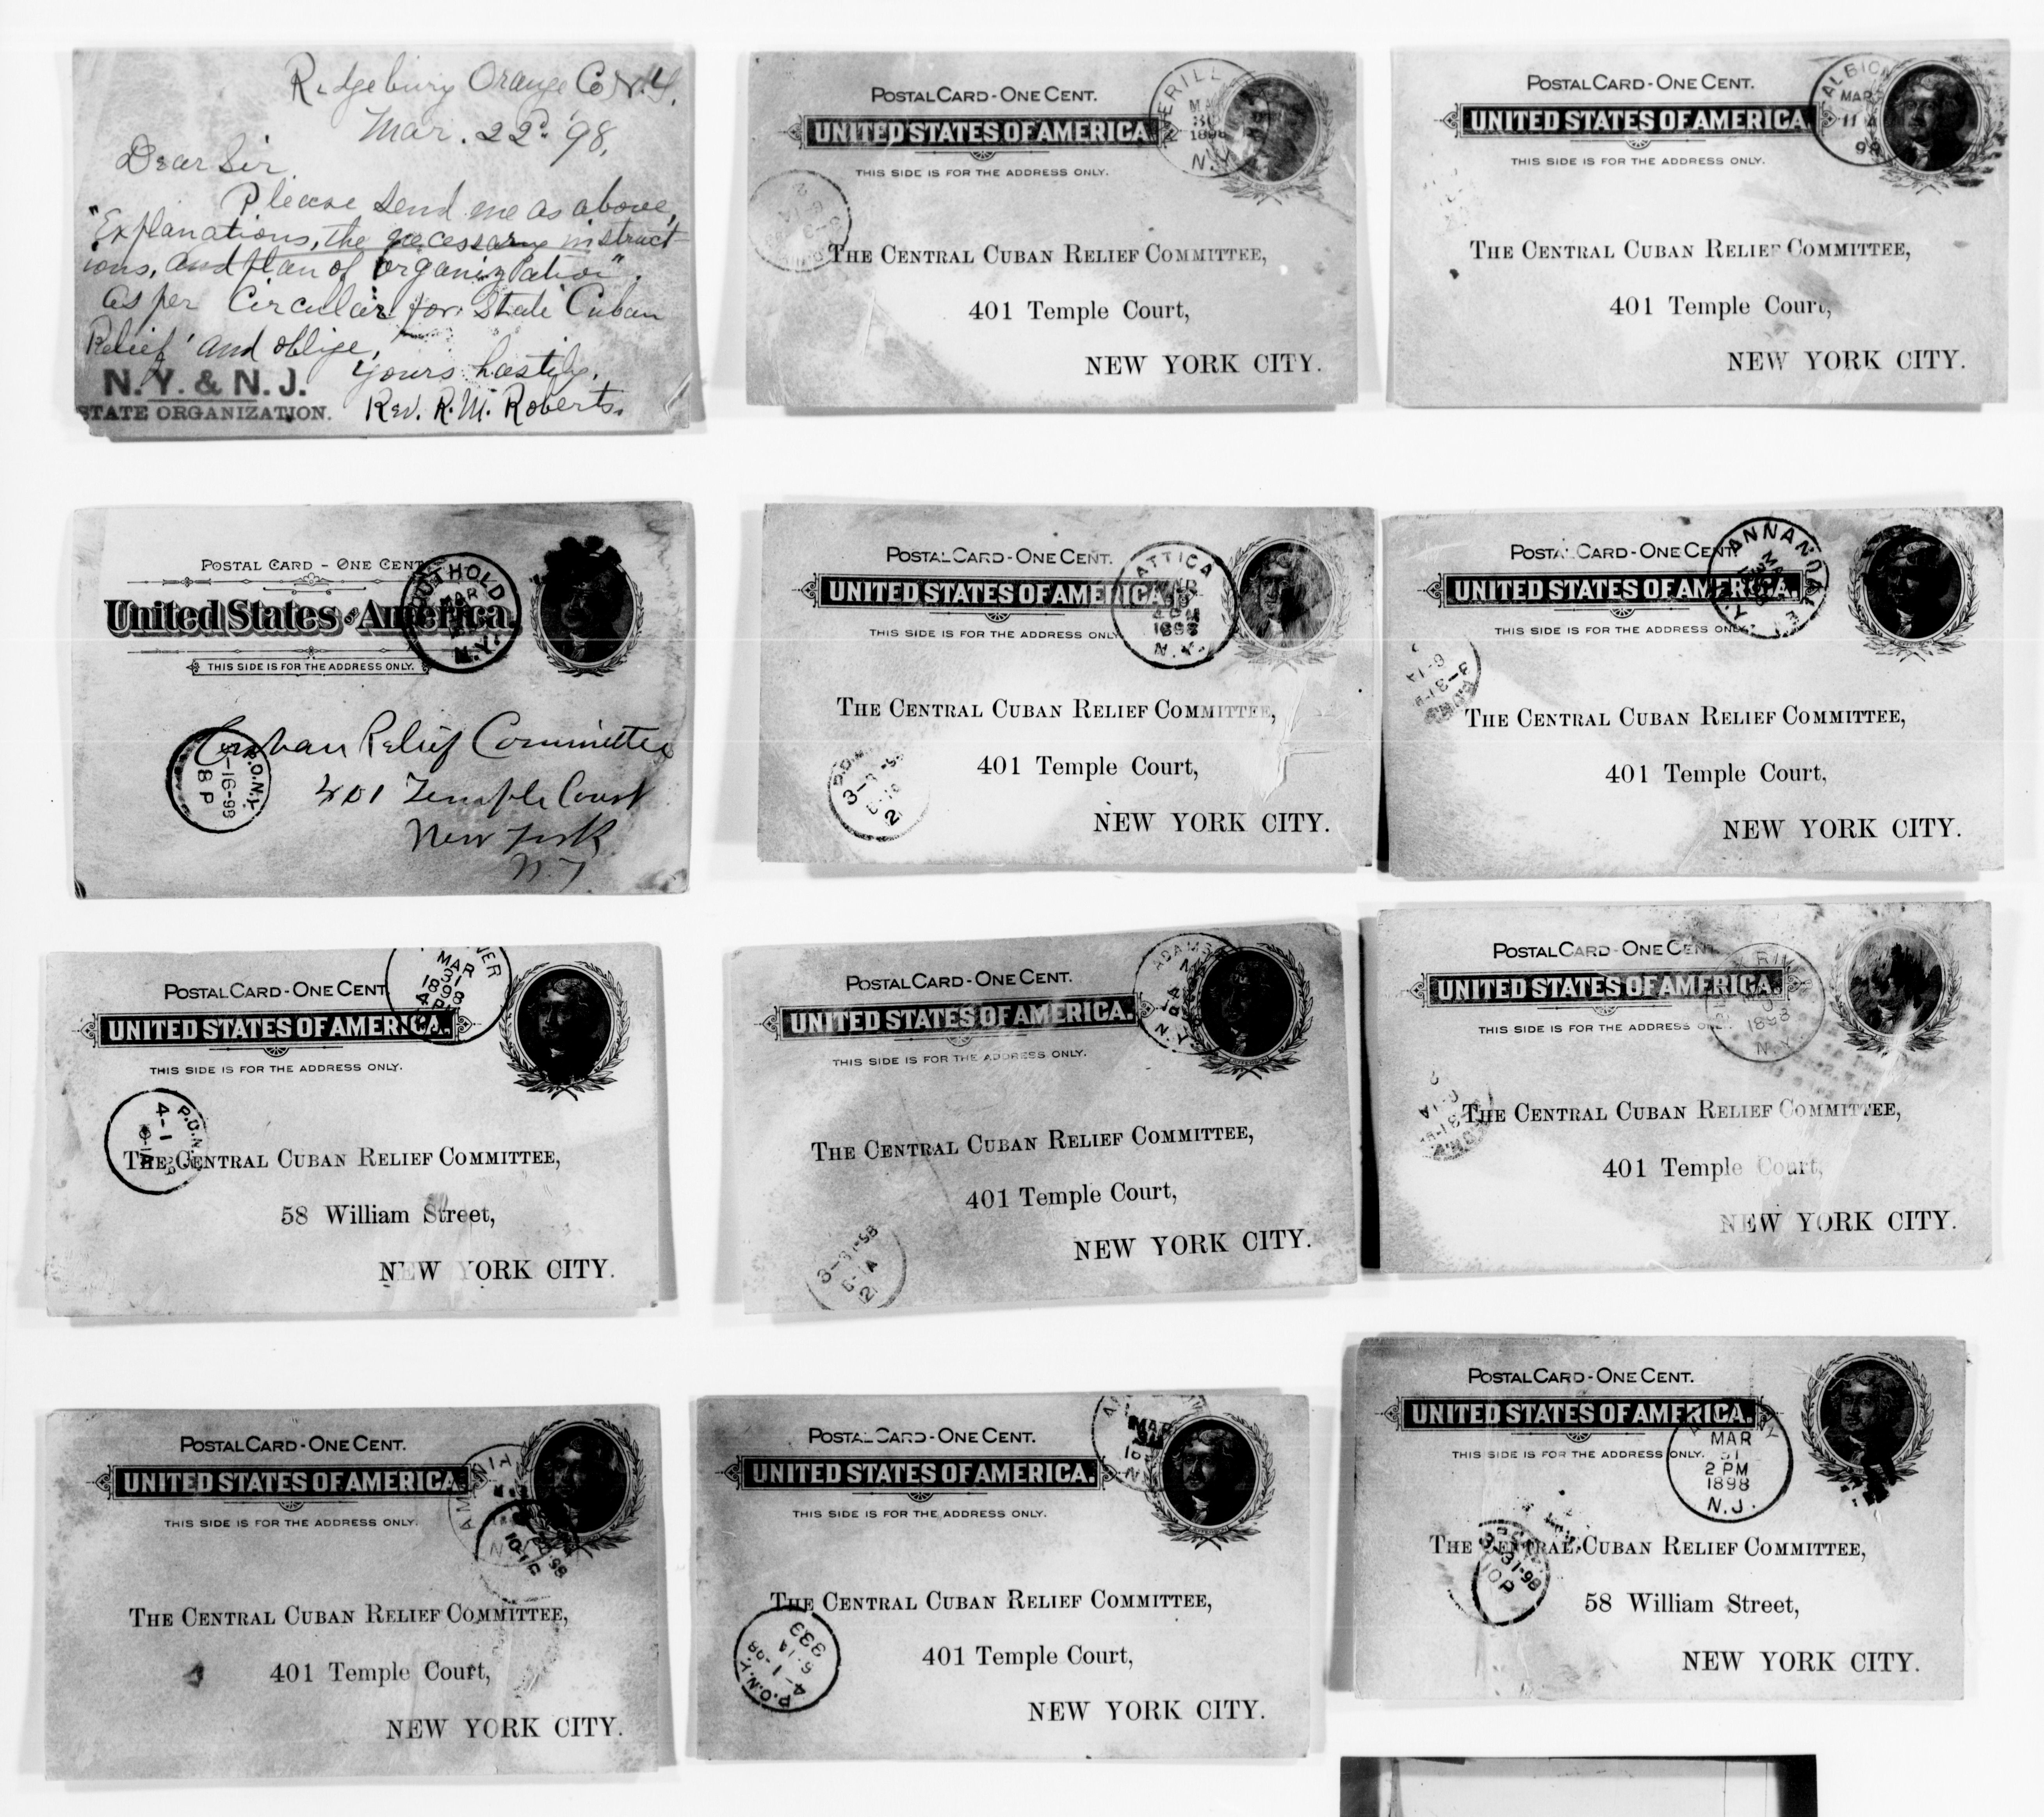 Ridgebury Orange Co N.Y.
Mar. 22d. '98.
Dear Sir
Please send me as above,
"Explanations, the necessary instruct-
ions, and plan of organization".
as per Circular for State Cuban
Relief and oblige,
Yours hastily,
Rev. R. M. Roberts.
N.Y. & N.J.
STATE ORGANIZATION.
POSTAL CARD - ONE CENT.
UNITED STATES OF AMERICA.
THIS SIDE IS FOR THE ADDRESS ONLY.
THE CENTRAL CUBAN RELIEF COMMITTEE,
401 Temple Court,
NEW YORK CITY.
N.Y.
POSTAL CARD - ONE CENT.
UNITED STATES OF AMERICA.
THIS SIDE IS FOR THE ADDRESS ONLY.
ALBION
MAR
98
THE CENTRAL CUBAN RELIEF COMMITTEE,
401 Temple Court,
NEW YORK CITY.
POSTAL CARD - ONE CENT.
United States of America.
THIS SIDE IS FOR THE ADDRESS ONLY.
SOUTHOLD
MAR
N.Y.
Cuban Relief Committee
401 Temple Court
New York
N.Y
P.O.N.Y.
3-16-98
8 P
POSTAL CARD - ONE CENT.
UNITED STATES OF AMERICA.
THIS SIDE IS FOR THE ADDRESS ONLY
ATTICA
1898
N.Y.
THE CENTRAL CUBAN RELIEF COMMITTEE,
401 Temple Court,
NEW YORK CITY.
POSTAL CARD - ONE CENT.
UNITED STATES OF AMERICA.
THIS SIDE IS FOR THE ADDRESS ONLY.
ANNANDALE
THE CENTRAL CUBAN RELIEF COMMITTEE,
401 Temple Court,
NEW YORK CITY.
POSTAL CARD - ONE CENT
UNITED STATES OF AMERICA.
THIS SIDE IS FOR THE ADDRESS ONLY.
MAR
31
1898
P.O.N.Y.
4-1
THE CENTRAL CUBAN RELIEF COMMITTEE,
58 William Street,
NEW YORK CITY.
POSTAL CARD - ONE CENT.
UNITED STATES OF AMERICA.
THIS SIDE IS FOR THE ADDRESS ONLY.
ADAMS
N.Y.
THE CENTRAL CUBAN RELIEF COMMITTEE,
401 Temple Court,
NEW YORK CITY.
3-31-98
6-1A
2
POSTAL CARD - ONE CENT
UNITED STATES OF AMERICA.
THIS SIDE IS FOR THE ADDRESS ONLY.
1898
N.Y.
THE CENTRAL CUBAN RELIEF COMMITTEE,
401 Temple Court,
NEW YORK CITY.
POSTAL CARD - ONE CENT.
UNITED STATES OF AMERICA.
THIS SIDE IS FOR THE ADDRESS ONLY.
AMENIA
THE CENTRAL CUBAN RELIEF COMMITTEE,
401 Temple Court,
NEW YORK CITY.
POSTAL CARD - ONE CENT.
UNITED STATES OF AMERICA.
THIS SIDE IS FOR THE ADDRESS ONLY.
MAR
THE CENTRAL CUBAN RELIEF COMMITTEE,
401 Temple Court,
NEW YORK CITY.
P.O.N.Y.
4-1-98
5-1A
333
POSTAL CARD - ONE CENT.
UNITED STATES OF AMERICA.
THIS SIDE IS FOR THE ADDRESS ONLY.
MAR
31
2 PM
1898
N.J.
3-31-98
10 P
THE CENTRAL CUBAN RELIEF COMMITTEE,
58 William Street,
NEW YORK CITY.